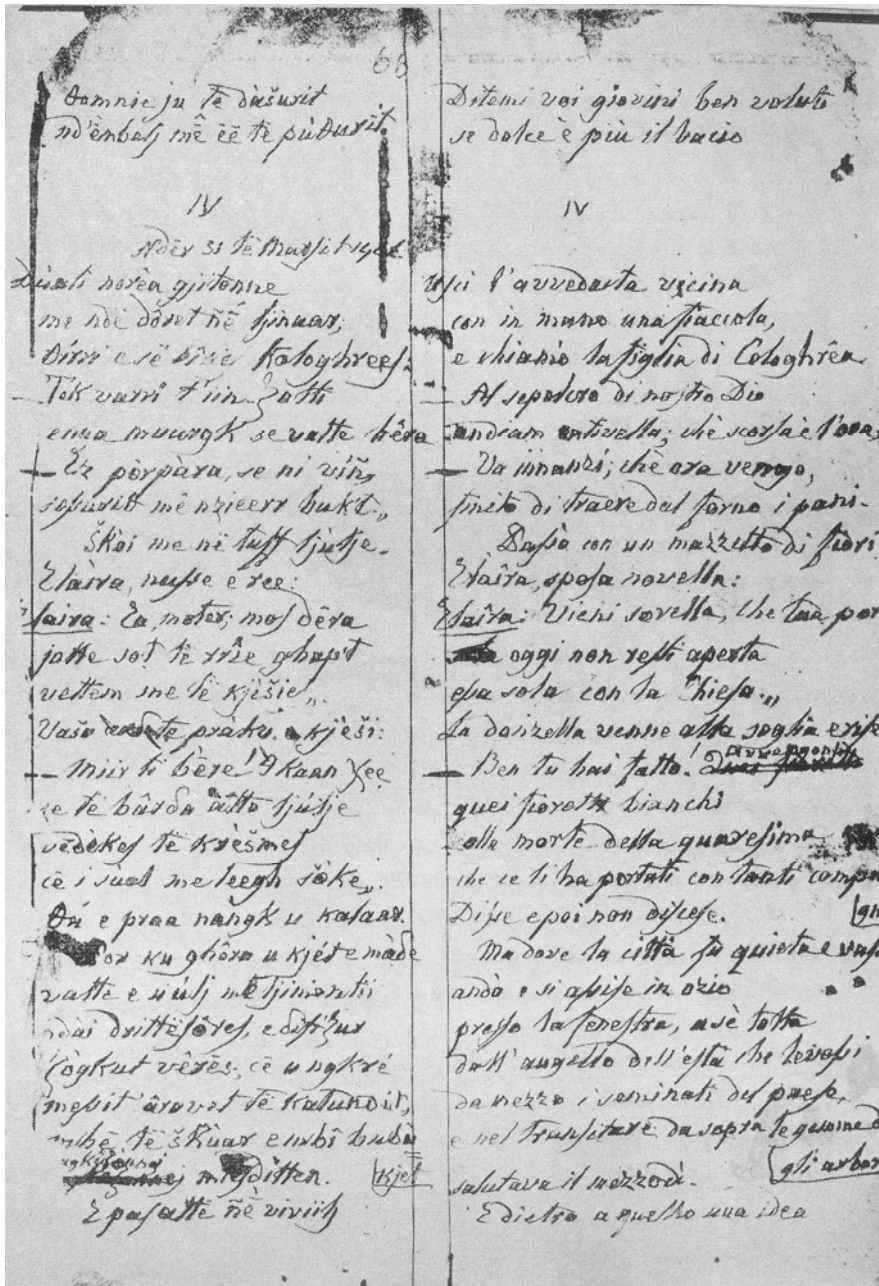 68
θomnie ju të dàšurit
nd'ëmbelj mê ëë të púθurit.
IV
Ndër 31 të Marsit
Dúali norêa gjitonne
me ndë dôret ñê ljinuar;
θírri e së bîsse Kaloghrees:
— Tek varri t'iin Zotti
emua muurgk se vatte hêra
— Ez pòrpàra, se ni víñ,
sosuritt mê nzieerr bukt„
Škoi me në tuff ljulje.
Elàira, nusse e ree:
Elaira: Ea, moter; mos dêra
jotte sot të rrîe ghapt
vettem me të kjišie„
Vaša te práku. e kjèši:
— Miir ti bêre! I kaan xee
te bârδa átto ljúlje
vedèkes të krèšmes
cë i súal me leegh šôke„.
θá e praa nangk u kalaar.
ku ghôra u kjét e màδe
vatte e u úlj mê ljimonti
ndài drittësôres,
zògkut vêrës, cë u ngkré
messit âravet të Katundit,
mbê të škùar embî bubù
kjet
mjesdítten.
E pasatte ñê viviih
Ditemi voi giovini ben voluti
se dolce è più il bacio
IV
Uscì l'avveduta vicina
con in mano una fiaccola,
e chiamò la figlia di Cologhrêa
— Al sepolcro di nostro Dio
andiam entivella; chè scorsa è l'ora,
— Va innanzi; chè ora vengo,
finito di trarre dal forno i pani.
Passò con un mazzetto di fiori
Elaîra, sposa novella:
Elaîra: Vieni sorella, che tua por
oggi non resti aperta
essa sola con la Chiesa.„
La donzella venne alla soglia e rise
— Ben tu hai fatto!
quei fioretti bianchi
alla morte della quaresima
che ce li ha portati con tanti compa
gni
Disse e poi non discese.
Ma dove la città fu quieta e vas
andò e si assise in ozio
presso la fenestra, a sè tolta
dall'augello dell'està che levossi
da mezzo i seminati del paese,
e nel transitare da sopra le gemme d
gli arbor
salutava il mezzodì.
E dietro a quello una idea